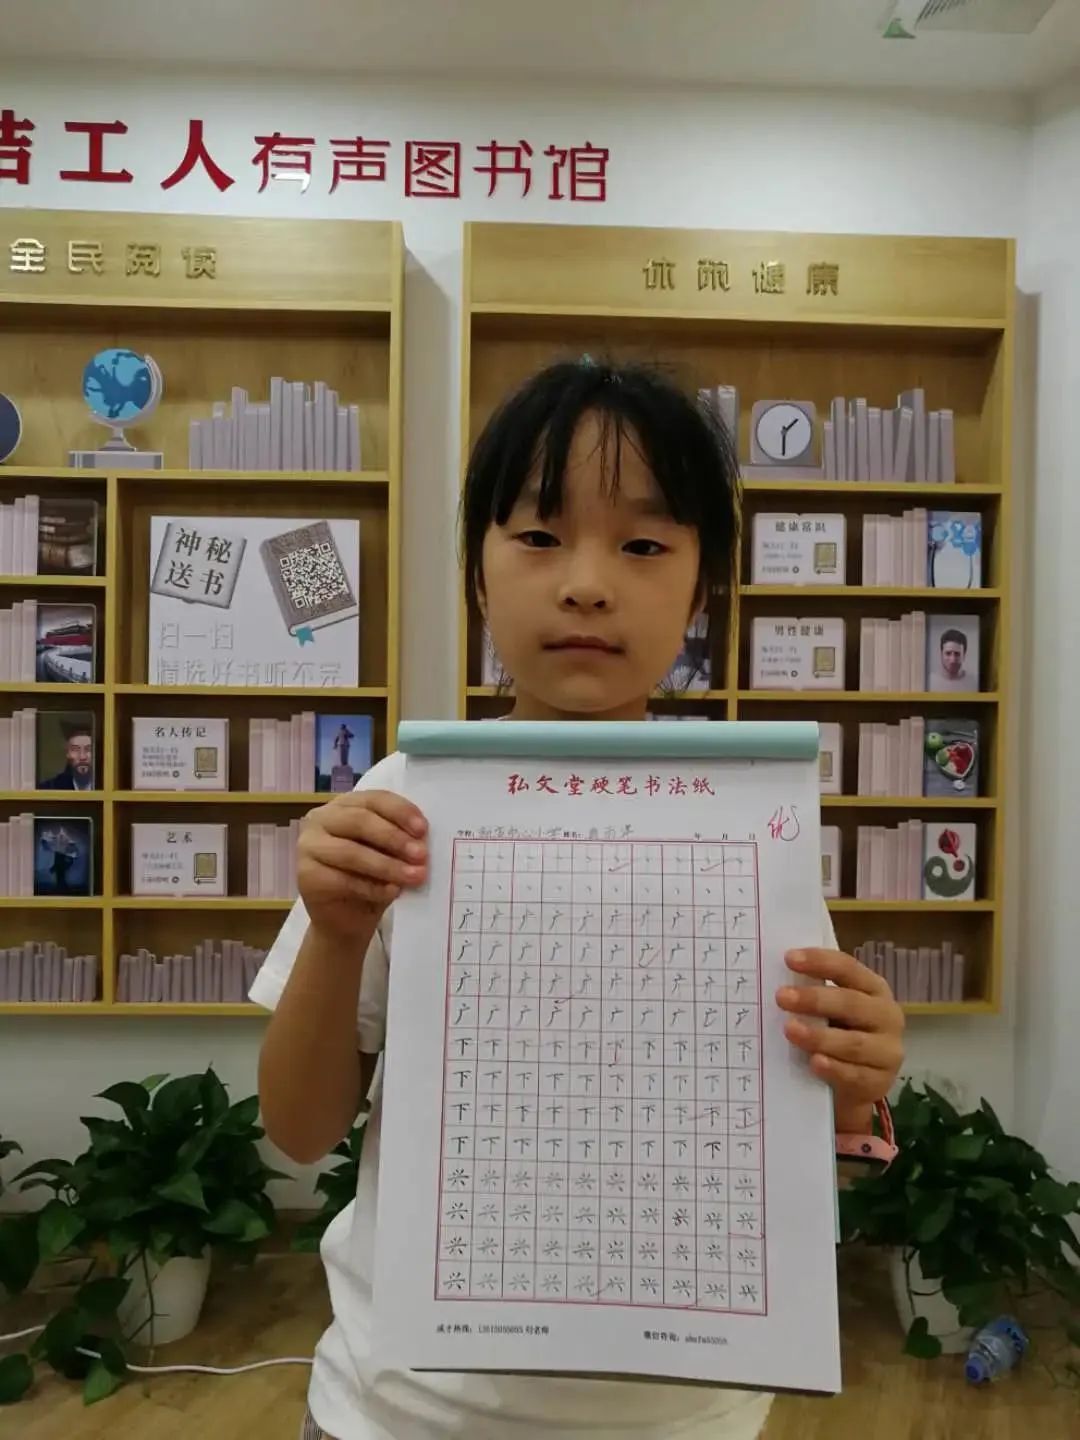 工人有声图书馆
全民阅读
休闲健康
神秘
送书
扫一扫
精选好书听不完
健康常识
男性健康
名人传记
艺术
弘文堂硬笔书法纸
优
学校: 中心小学 姓名: 年 月 日
丶丶丶丶丶丶丶丶丶丶
丶丶丶丶丶丶丶丶丶丶
广广广广广广广广广广
广广广广广广广广广广
广广广广广广广广广广
广广广广广广广广广广
下下下下下下下下下下
下下下下下下下下下下
下下下下下下下下下下
下下下下下下下下下下
兴兴兴兴兴兴兴兴兴兴
兴兴兴兴兴兴兴兴兴兴
兴兴兴兴兴兴兴兴兴兴
兴兴兴兴兴兴兴兴兴兴